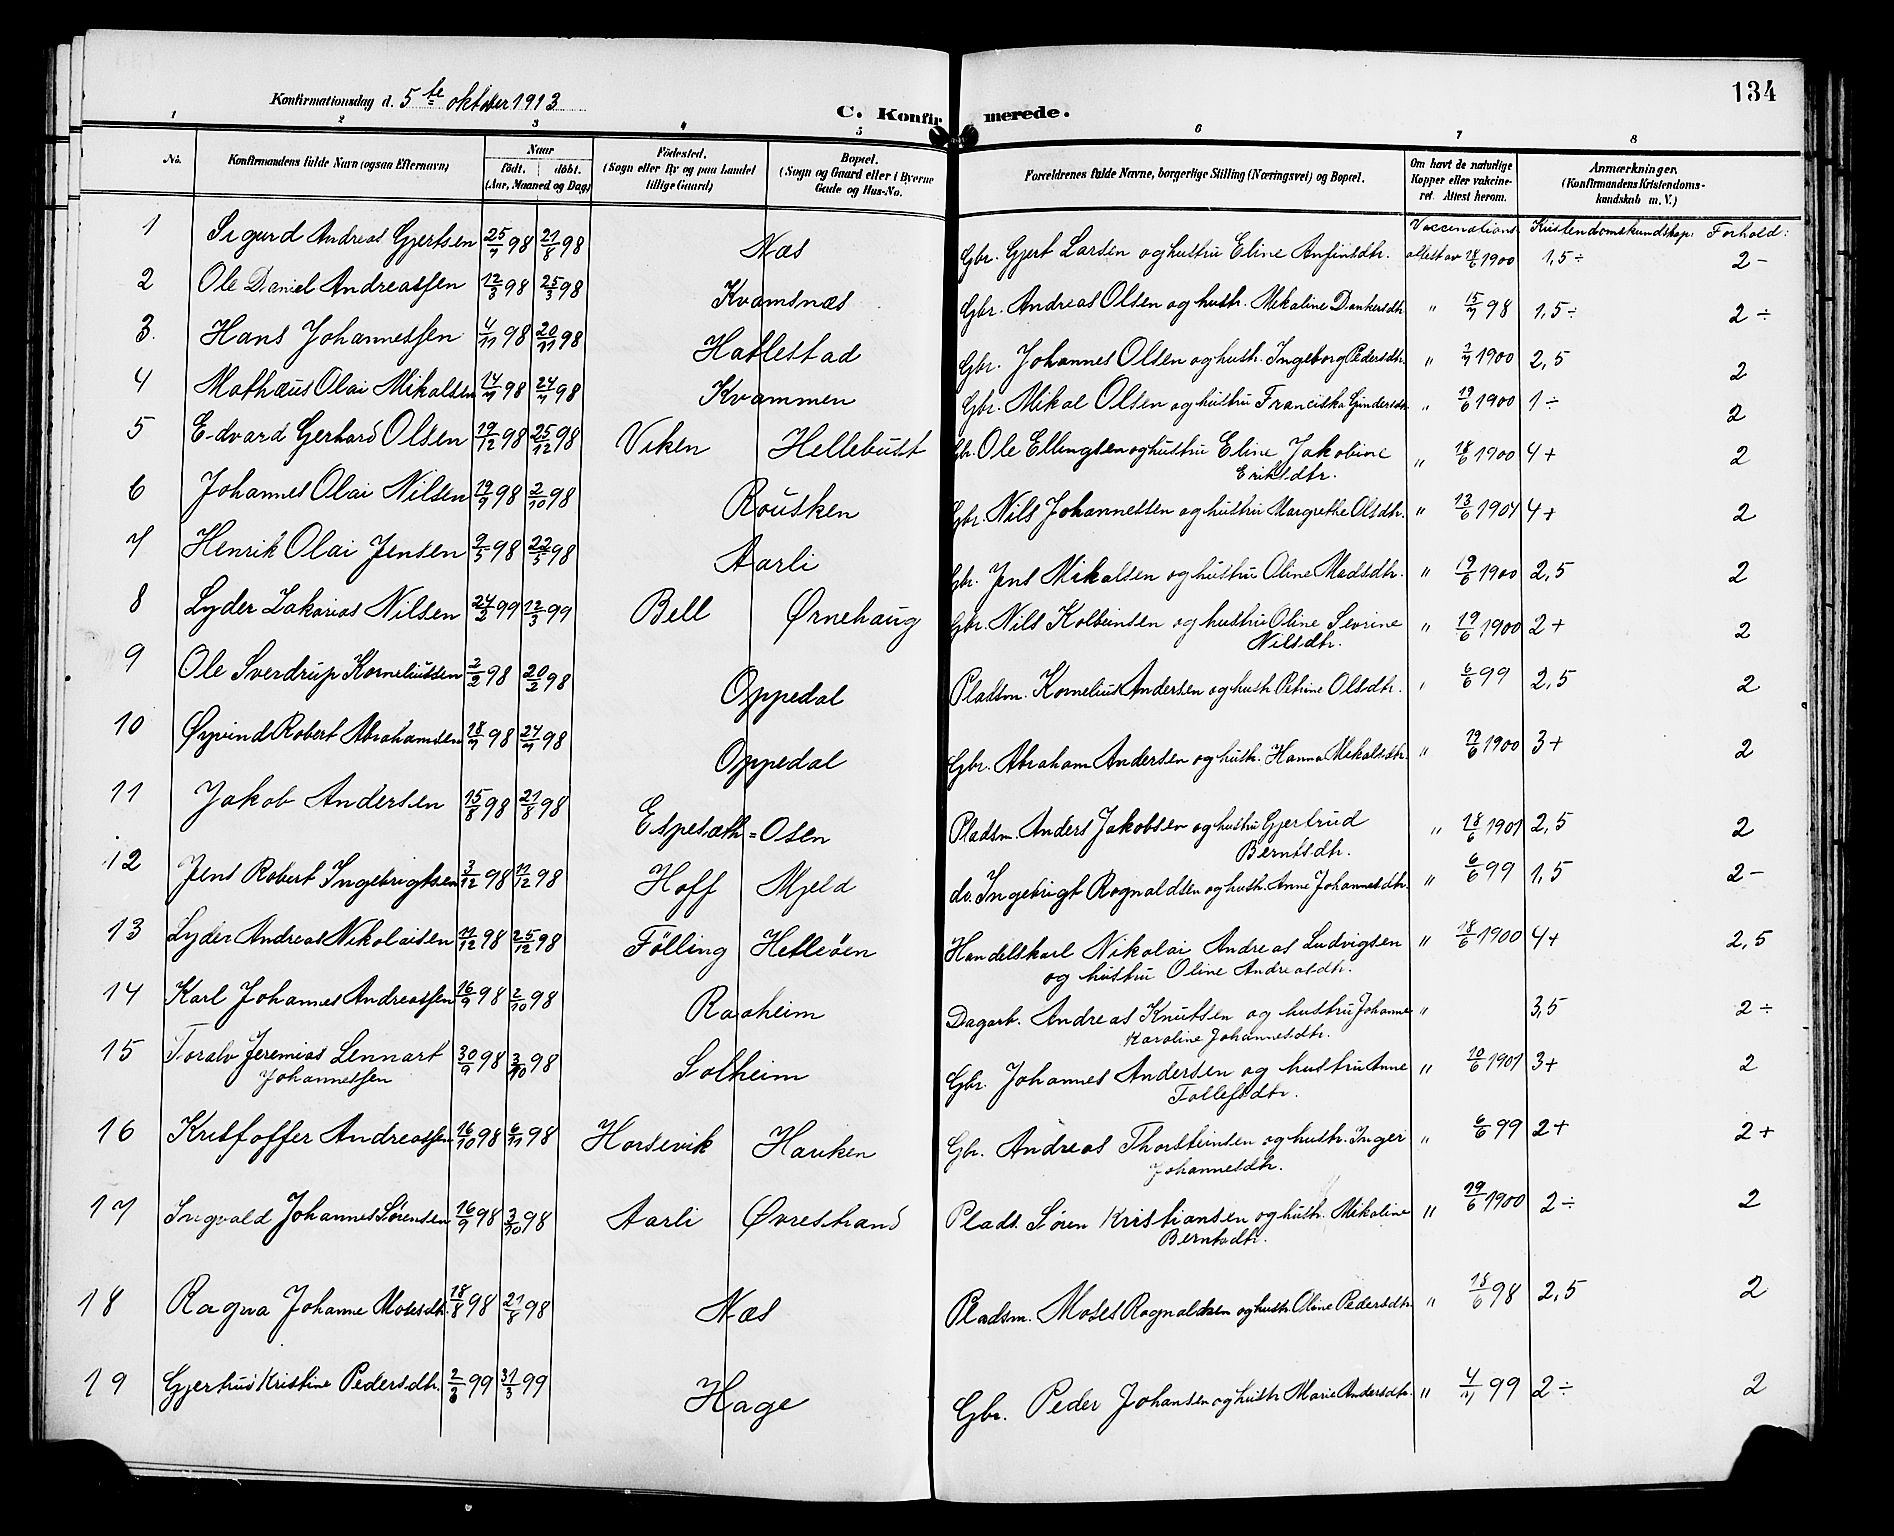 134
Konfirmationsdag d. 5te oktober 1913
C. Konfirmerede.
1 2 3 4 5 6 7 8
No. Konfirmandens fulde Navn (ogsaa Efternavn) Naar født. døbt. (Aar, Maaned og Dag) Fødested. (Sogn eller By og paa Landet tillige Gaard) Bopæl. (Sogn og Gaard eller i Byerne Gade og Hus-No. Forældrenes fulde Navne, borgerlige Stilling (Næringsvei) og Bopæl. Om havt de naturlige Kopper eller vakcineret. Attest herom. Anmærkninger. (Konfirmandens Kristendomskundskab m. V.)
Vaccinations- Kristendomskundskap: Forhold:
1 Sigurd Andreas Gjertsen 25/7 98 21/8 98 Næs Gbr. Gjert Larsen og hustru Eline Anfinsdtr. attest av 18/6 1900 1,5 ÷ 2 -
2 Ole Daniel Andreassen 12/3 98 25/3 98 Kvamsnæs Gbr. Andreas Olsen og hustr. Mekaline Dankersdtr " 15/7 98 1,5 ÷ 2 ÷
3. Hans Johannessen 4/11 98 20/11 98 Hatlestad Gbr. Johannes Olsen og hustr. Ingeborg Pedersdtr. " 1900 2,5 2
4 Mathæus Olai Mikalsen 14/7 98 24/7 98 Kvammen Gbr. Mikal Olsen og hustru Franciska Gundersdtr " 19/6 1900 1 ÷ 2
5 Edvard Gerhard Olsen 19/12 98 25/12 98 Viken Hellebust Gbr. Ole Ellingsen og hustru Eline Jakobine " 18/6 1900 4+ 2
Eriksdtr.
6 Johannes Olai Nilsen 19/9 98 2/10 98 Rousken Gbr. Nils Johannessen og hustru Margrethe Olsdtr. " 13/6 1901 4+ 2
7 Henrik Olai Jensen 9/5 98 22/5 98 Aarli Gbr. Jens Mikalsen og hustru Oline Madsdtr. " 19/6 1900 2,5 2
8 Lyder Zakarias Nilsen 24/2 99 12/3 99 Bell Ørnehaug Gbr. Nils Kolbeinsen og hustru Oline Sevrine " 19/6 1900 2+ 2
Nilsdtr.
9 Ole Sverdrup Korneliussen 2/2 98 20/2 98 Oppedal Pladsm. Kornelius Andersen og hustr. Petrine Olsdtr. " 6/6 99 2,5 2
10 Øyvind Robert Abrahamsen 18/7 98 24/7 98 Oppedal Gbr. Abraham Andersen og hustr. Hanna Mikalsdtr. " 19/6 1900 3+ 2
11 Jakob Andersen 15/8 98 21/8 98 Espesæth = Osen Pladsm. Anders Jakobsen og hustru Gjertrud " 18/6 1901 2,5 2
Berntsdtr.
12 Jens Robert Ingebrigtsen 3/12 98 11/12 98 Hoff Mjeld do. Ingebrigt Rognaldsen og hustr. Anne Johannesdtr. " 6/6 99 1,5 2 -
13 Lyder Andreas Nikolaisen 11/12 98 25/12 98 Fölling Hetleöen Handelskarl Nikolai Andreas Ludvigsen " 18/6 1900 4+ 2,5
og hustru Oline Andreasdtr.
14 Karl Johannes Andreassen 16/9 98 2/10 98 Raaheim Dagarb. Andreas Knutsen og hustru Johanne " 3,5 2 ÷
Karoline Johannesdtr.
15 Toralv Jeremias Lennart 30/9 98 3/10 98 Solheim Gbr. Johannes Andersen og hustru Anne " 10/6 1901 3+ 2
Johannessen Tollefsdtr.
16 Kristoffer Andreassen 16/10 98 6/11 98 Horsevik Hauken Gbr. Andreas Thorsteinsen og hustr. Inger " 6/6 99 2+ 2+
Johannesdtr.
17 Ingvald Johannes Sørensen 16/9 98 3/10 98 Aarli Øvrestrand Plads. Søren Kristiansen og hustr. Mikaline " 19/6 1900 2 ÷ 2
Berntsdtr.
18 Ragna Johanne Mosesdtr. 18/8 98 21/8 98 Næs Pladsm. Moses Rognaldsen og hustr. Oline Pedersdtr. " 15/6 98 2,5 2
19 Gjertrud Kristine Pedersdtr. 2/3 99 31/3 99 Hage Gbr. Peder Johansen og hustr Marie Andersdtr. " 4/7 99 2 ÷ 2